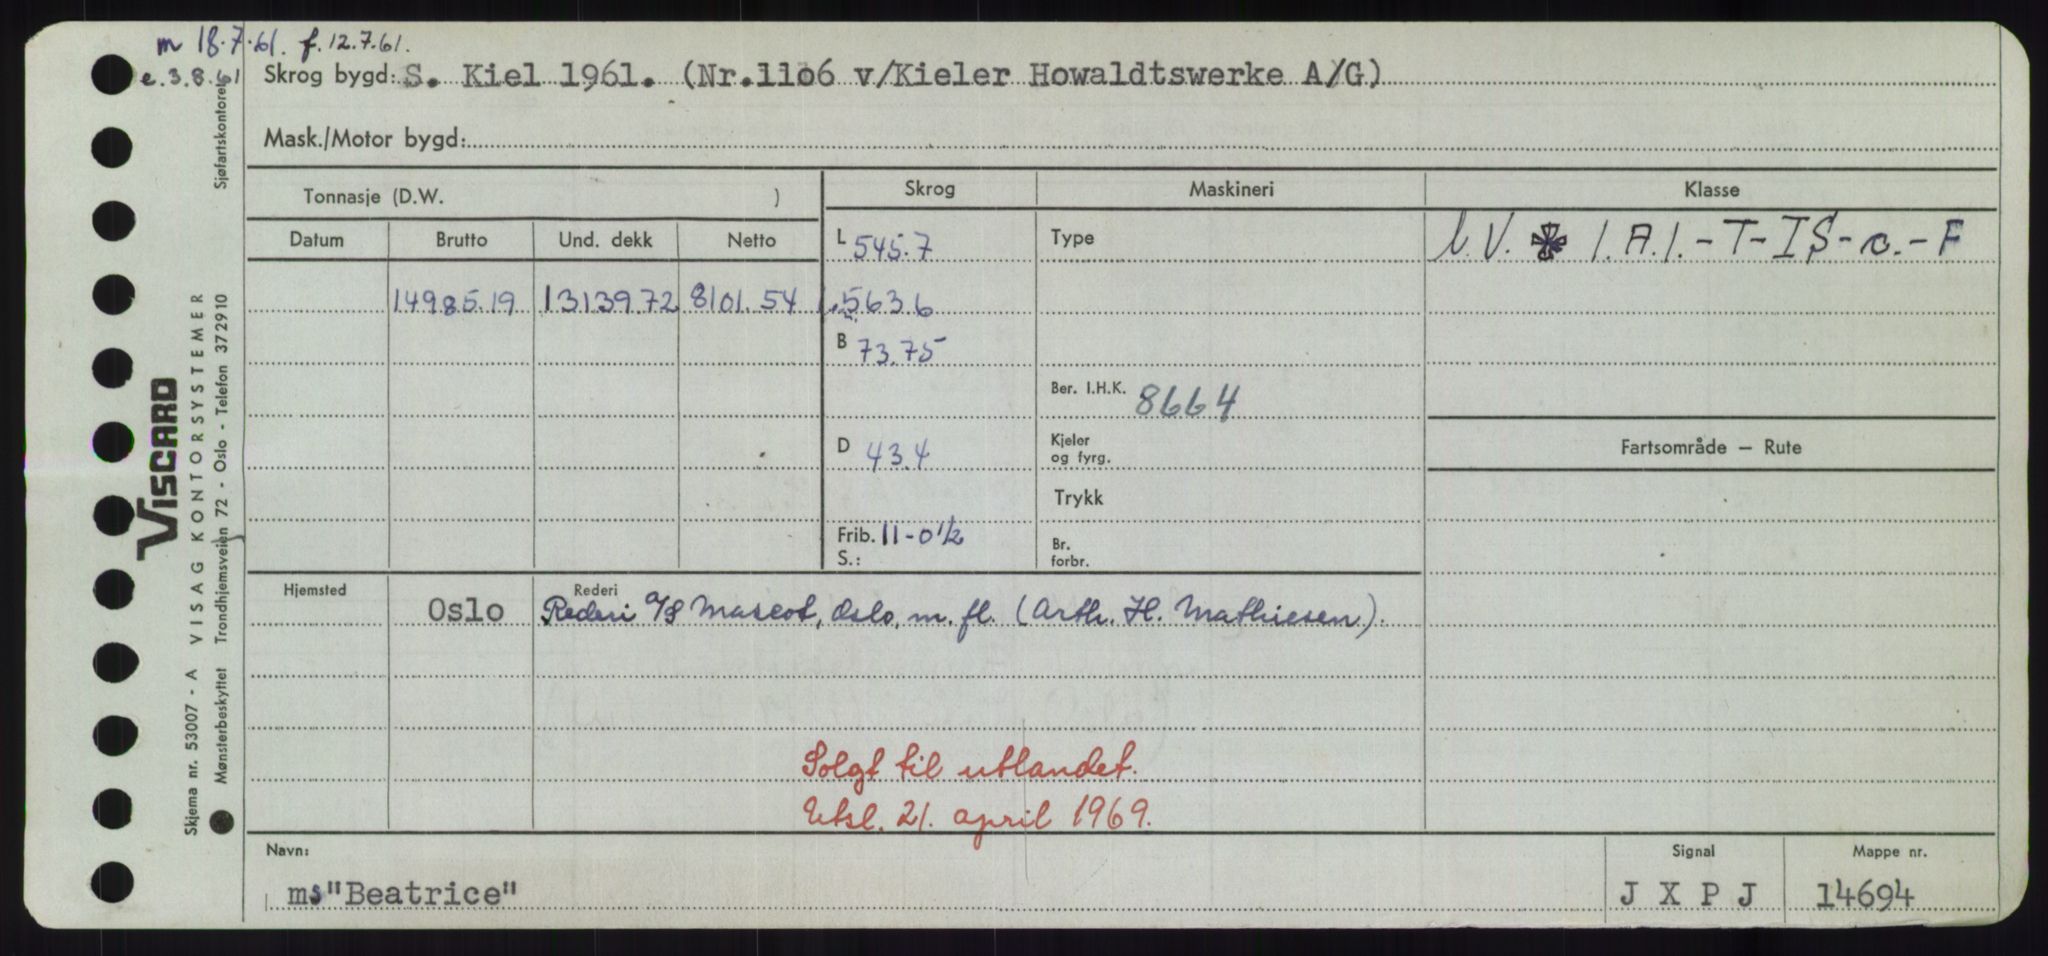 m 18.7.61. f. 12.7.61.
e. 3.8.61
Skrog bygd: S. Kiel 1961. (Nr.1106 v/Kieler Howaldtswerke A/G)
Mask./Motor bygd:
Tonnasje (D.W. )
Skrog
Maskineri
Klasse
Datum
Brutto
Und. dekk
Netto
L 545.7
Type
1.A.1.-T-IS-c.-F
14985.19 13139.72 8101.54
563.6
B 73.75
Ber. I.H.K. 8664
D 43.4
Kjeler
og fyrg.
Fartsområde — Rute
Trykk
Frib. 11-0½
S.:
Br.
forbr.
Hjemsted
Rederi
Oslo
Rederi A/S Mascot, Oslo, m. fl. (Arth. H. Mathiesen).
Solgt til utlandet.
Utsl. 21. april 1969.
Navn:
Signal
Mappe nr.
ms "Beatrice"
J X P J
14694
Viscard
VISAG KONTORSYSTEMER
Sjøfartskontoret
Skjema nr. 53007 - A
Mønsterbeskyttet Trondhjemsveien 72 - Oslo - Telefon 372910